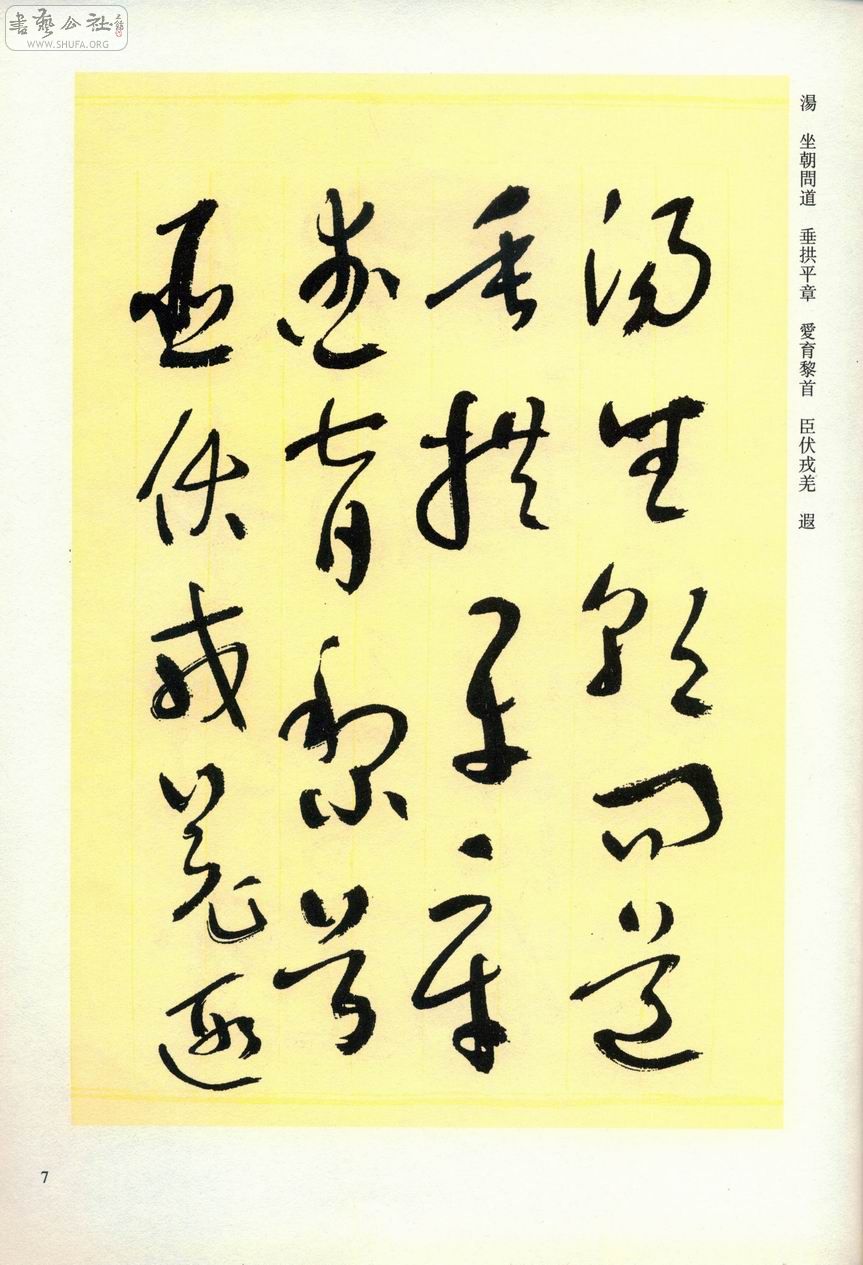 書藝公社
WWW.SHUFA.ORG
湯 坐朝問道 垂拱平章 愛育黎首 臣伏戎羌 遐
湯坐朝問道
垂拱平章
愛育黎首
臣伏戎羌遐
7